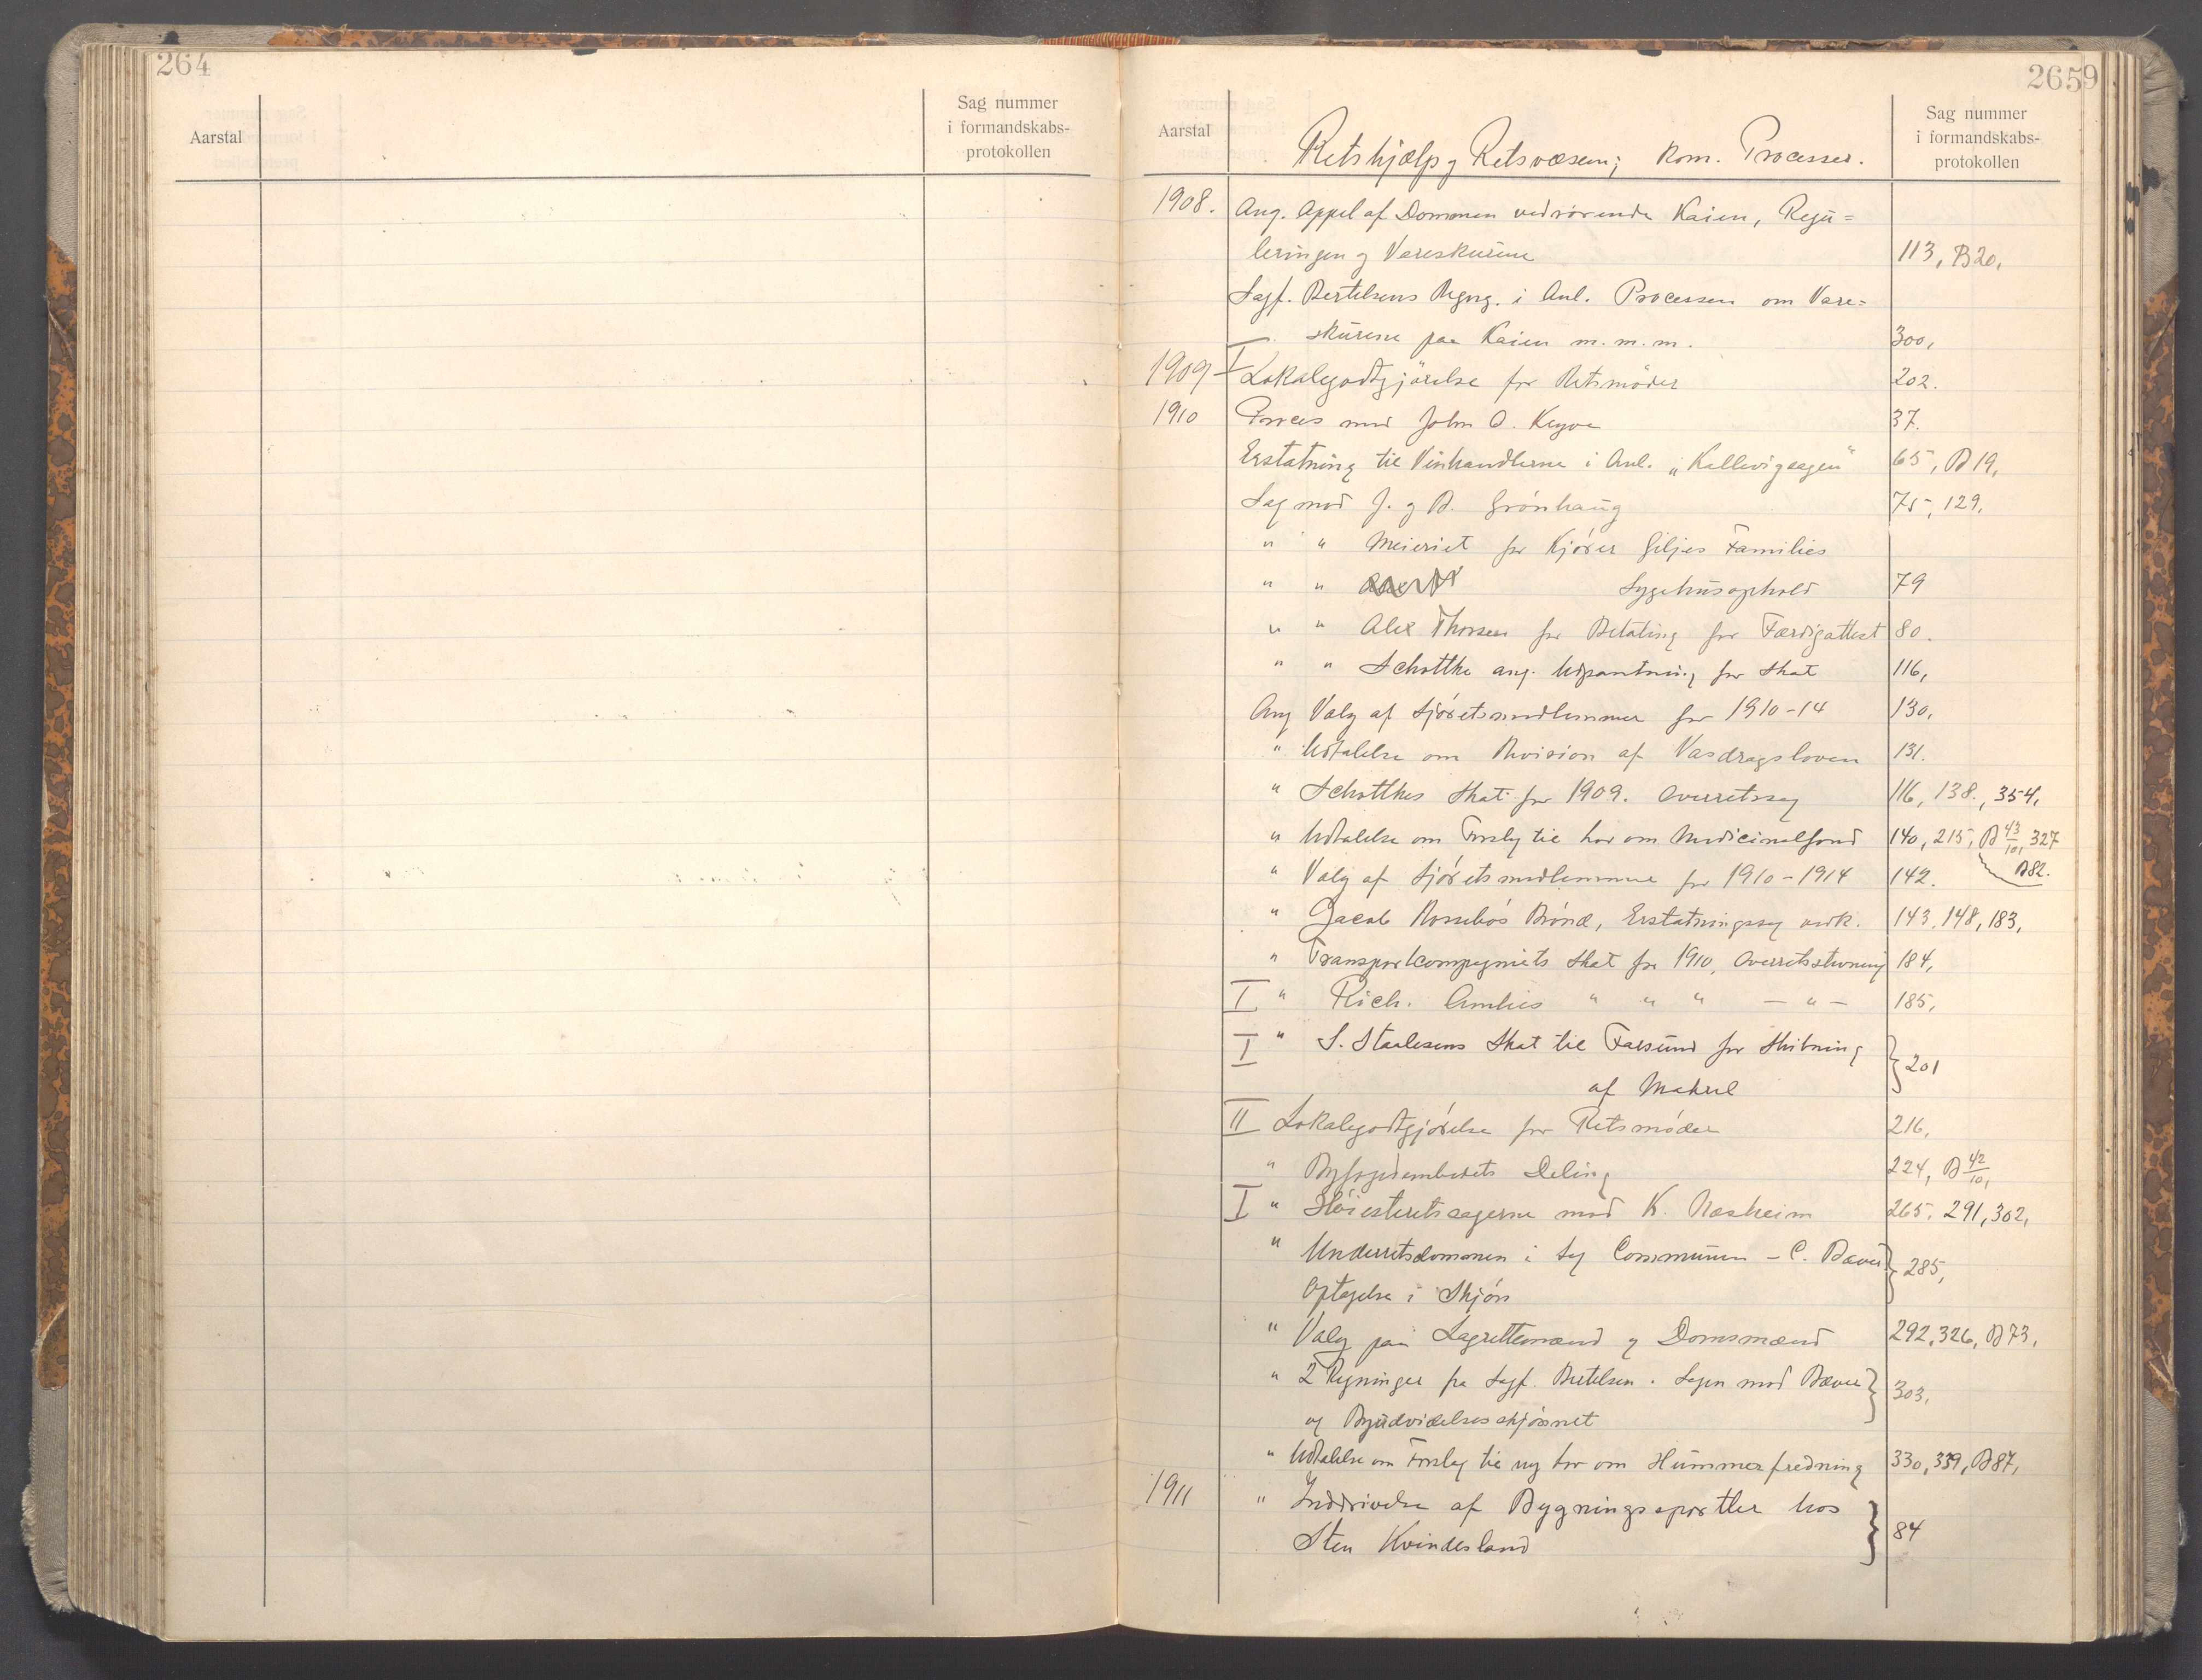 264
Aarstal
Sag nummer
i formandskabs-
protokollen
2659
Aarstal
Retshjælp og Retsvæsen; Kom. Processer.
Sag nummer
i formandskabs-
protokollen
1908. Ang. Appel af Dommen vedrørende Kaien, Regu=
leringen og Vareskurene 113, B20,
Sagf. Bertelsens Regng. i Anl. Processen om Vare=
skurene paa Kaien m.m.m. 300,
1909 I Lokalegodtgjörelse for Retsmöder 202.
1910 Proces mod John O. Kegve 37.
Erstatning til Vinhandlerne i Anl. "Kallevigsagen" 65, B19,
Sag mod J. og B. Grónhaug 75, 129,
" " Meieriet for Kjór Giljes Families
" " Sygehusophold 79
" " Alex Thorsen for Betaling for Færdigattest 80.
" " Schottke ang. Udpantning for Skat 116,
Ang Valg af Sjóretsmedlemmer for 1910-14 130,
" Udtalelse om Revision af Vasdragsloven 131.
" Schottkes Skat for 1909. Overretssag 116, 138., 354,
" Udtalelse om Forslag til Lov om Medicinalfond 140, 215, B 43/10, 327
B82.
" Valg af Sjóretsmedlemmer for 1910-1914 142.
" Jacob Rossebós Brónd, Erstatningssag vedk. 143, 148, 183,
" Transportcompagniets Skat for 1910, Overretsstevning 184,
I " Rich. Amlies " " " - " - 185,
I " S. Staalesens Skat til Farsund for Skibning
af Makrel } 201
II Lokalegodtgjórelse for Retsmóder 216,
" Byfogedembedets Deling 224, B 42/10,
I " Hóiesteretssagerne mod K. Næsheim 265, 291, 302,
" Underretsdommen i Sag Communen - C. Bæver
Optagelse i Skjón } 285,
" Valg paa Lagrettemænd og Domsmænd 292, 326, B73,
" 2 Regninger fra Sagf. Bertelsen. Sagen mod Bæver
og Byudvidelsesskjónnet } 303,
" Udtalelse om Forslag til ny Lov om Hummerfredning 330, 339, B87,
1911 " Inddrivelse af Bygningssportler hos
Sten Kvindesland } 84